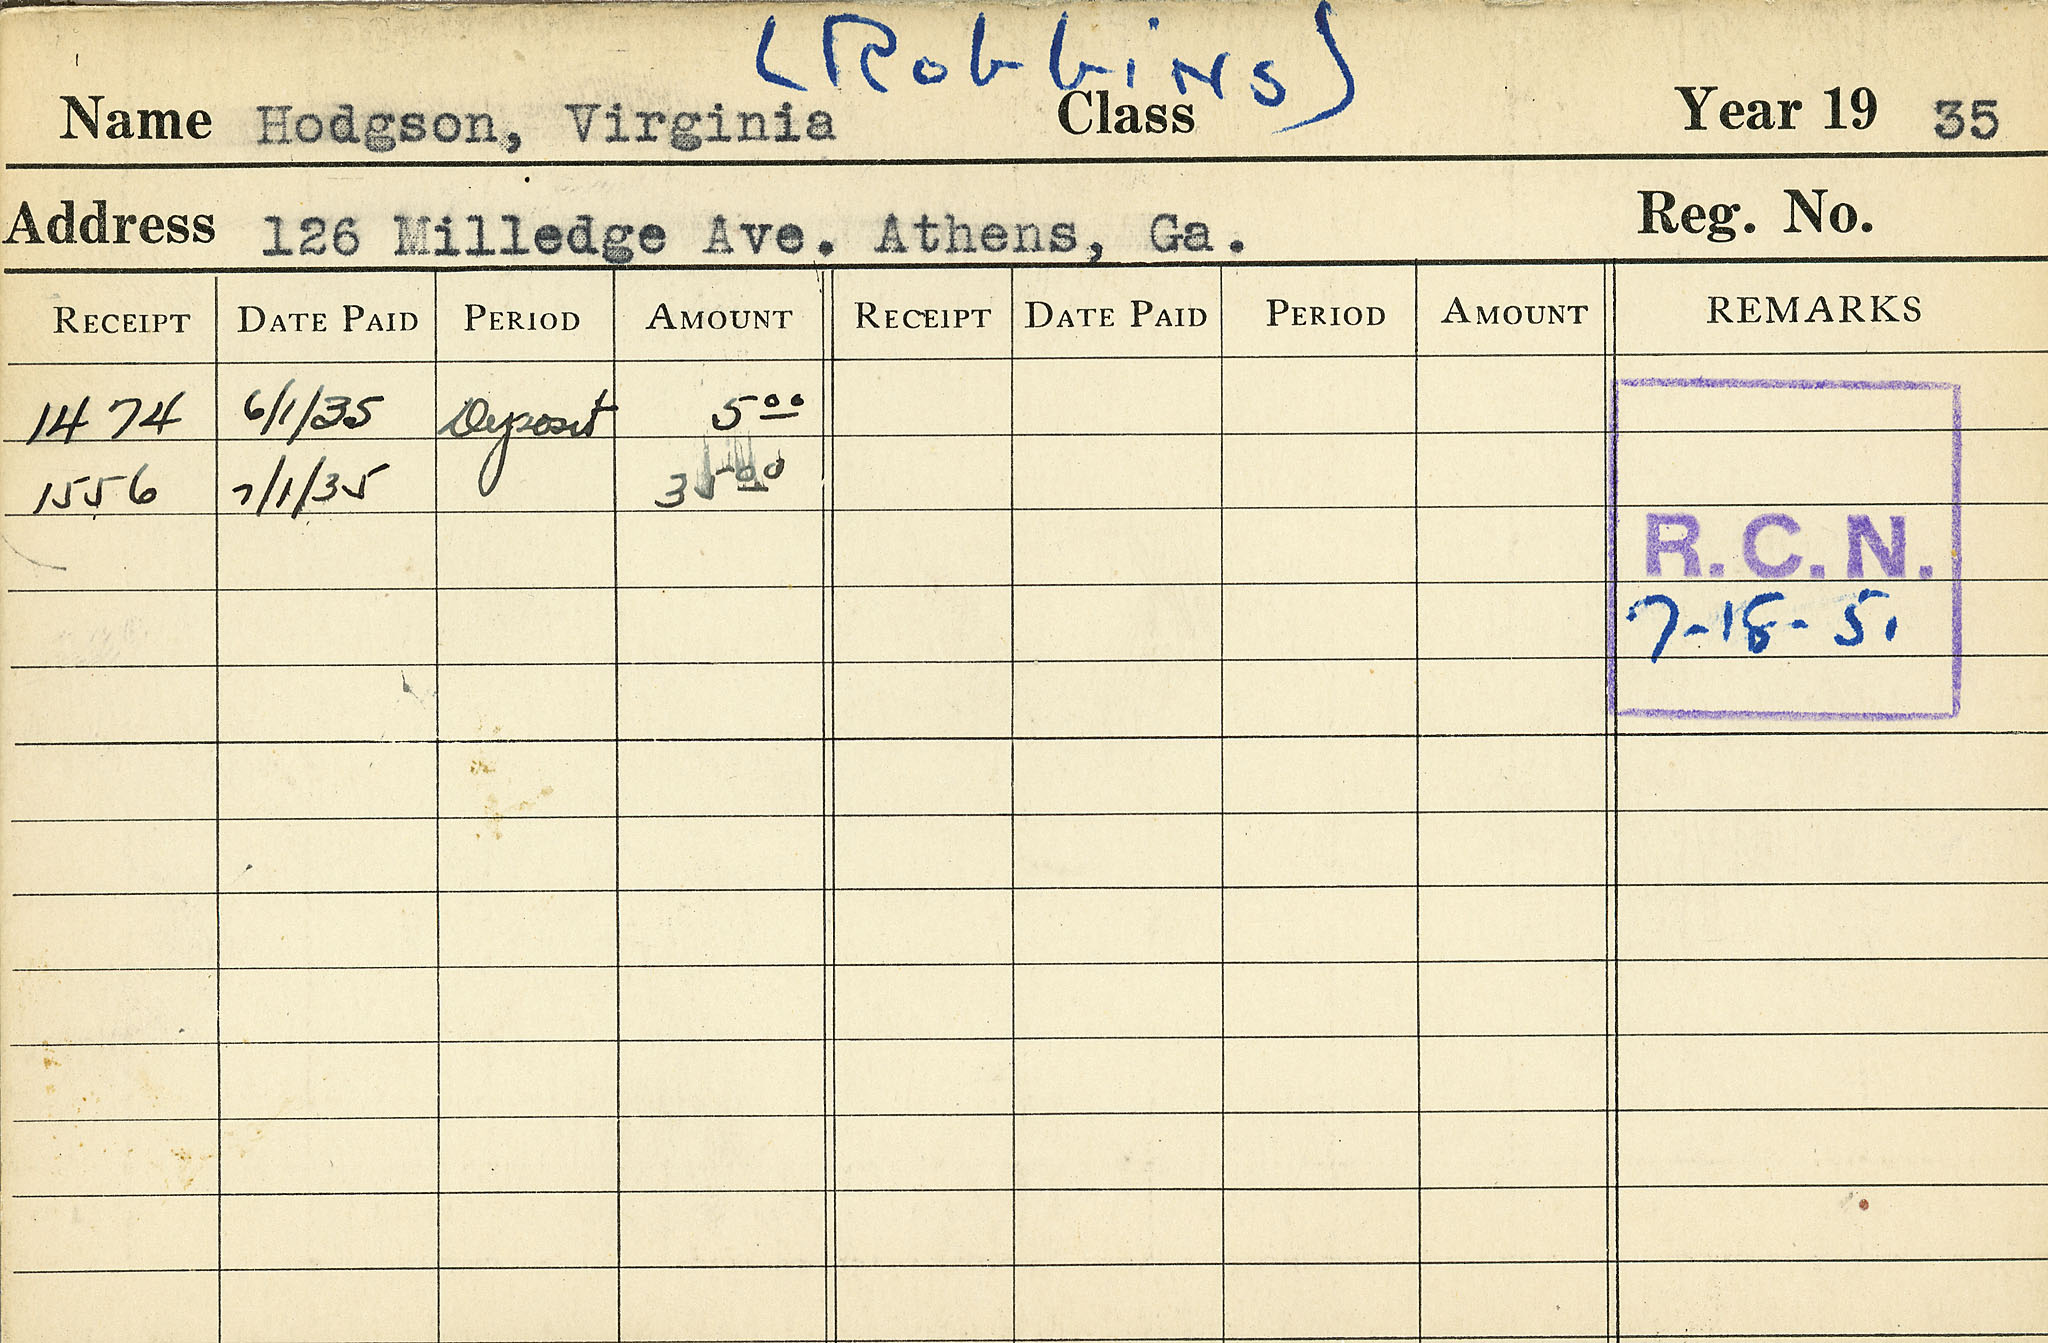 (Robbins)
Name Hodgson, Virginia Class Year 19 35
Address 126 Milledge Ave. Athens, Ga. Reg. No.
RECEIPT DATE PAID PERIOD AMOUNT RECEIPT DATE PAID PERIOD AMOUNT REMARKS
1474 6/1/35 Deposit 5 00
1556 7/1/35 35 00
R.C.N.
7-18-51